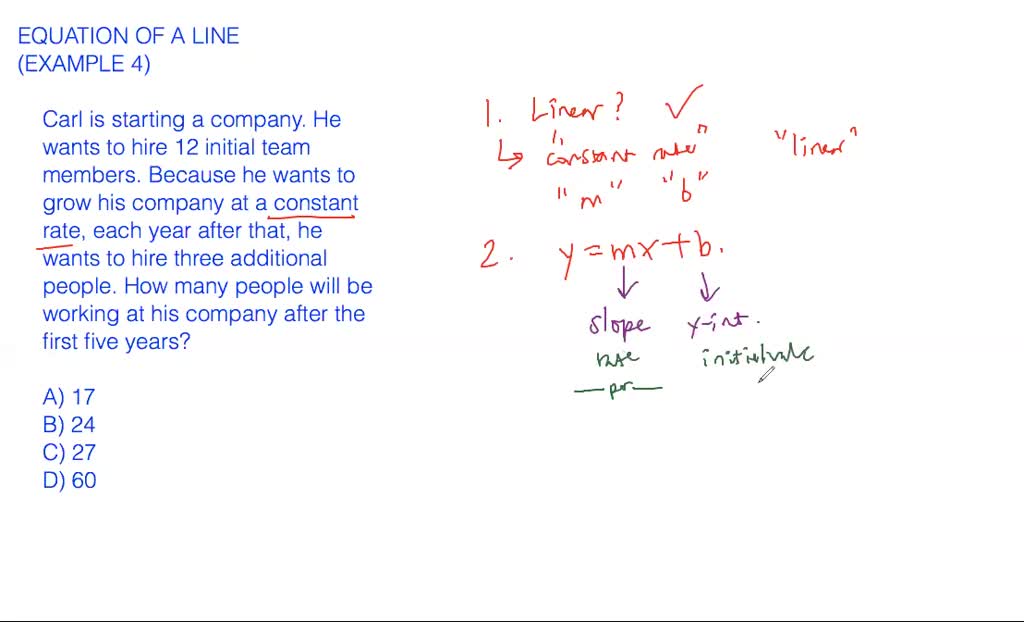 EQUATION OF A LINE
(EXAMPLE 4)
Carl is starting a company. He
wants to hire 12 initial team
members. Because he wants to
grow his company at a constant
rate, each year after that, he
wants to hire three additional
people. How many people will be
working at his company after the
first five years?
A) 17
B) 24
C) 27
D) 60
1. Linear? ✓
↳ "constant rate" "linear"
"m" "b"
2. y = mx + b.
↓ ↓
slope y-int.
rate initial value
— per —